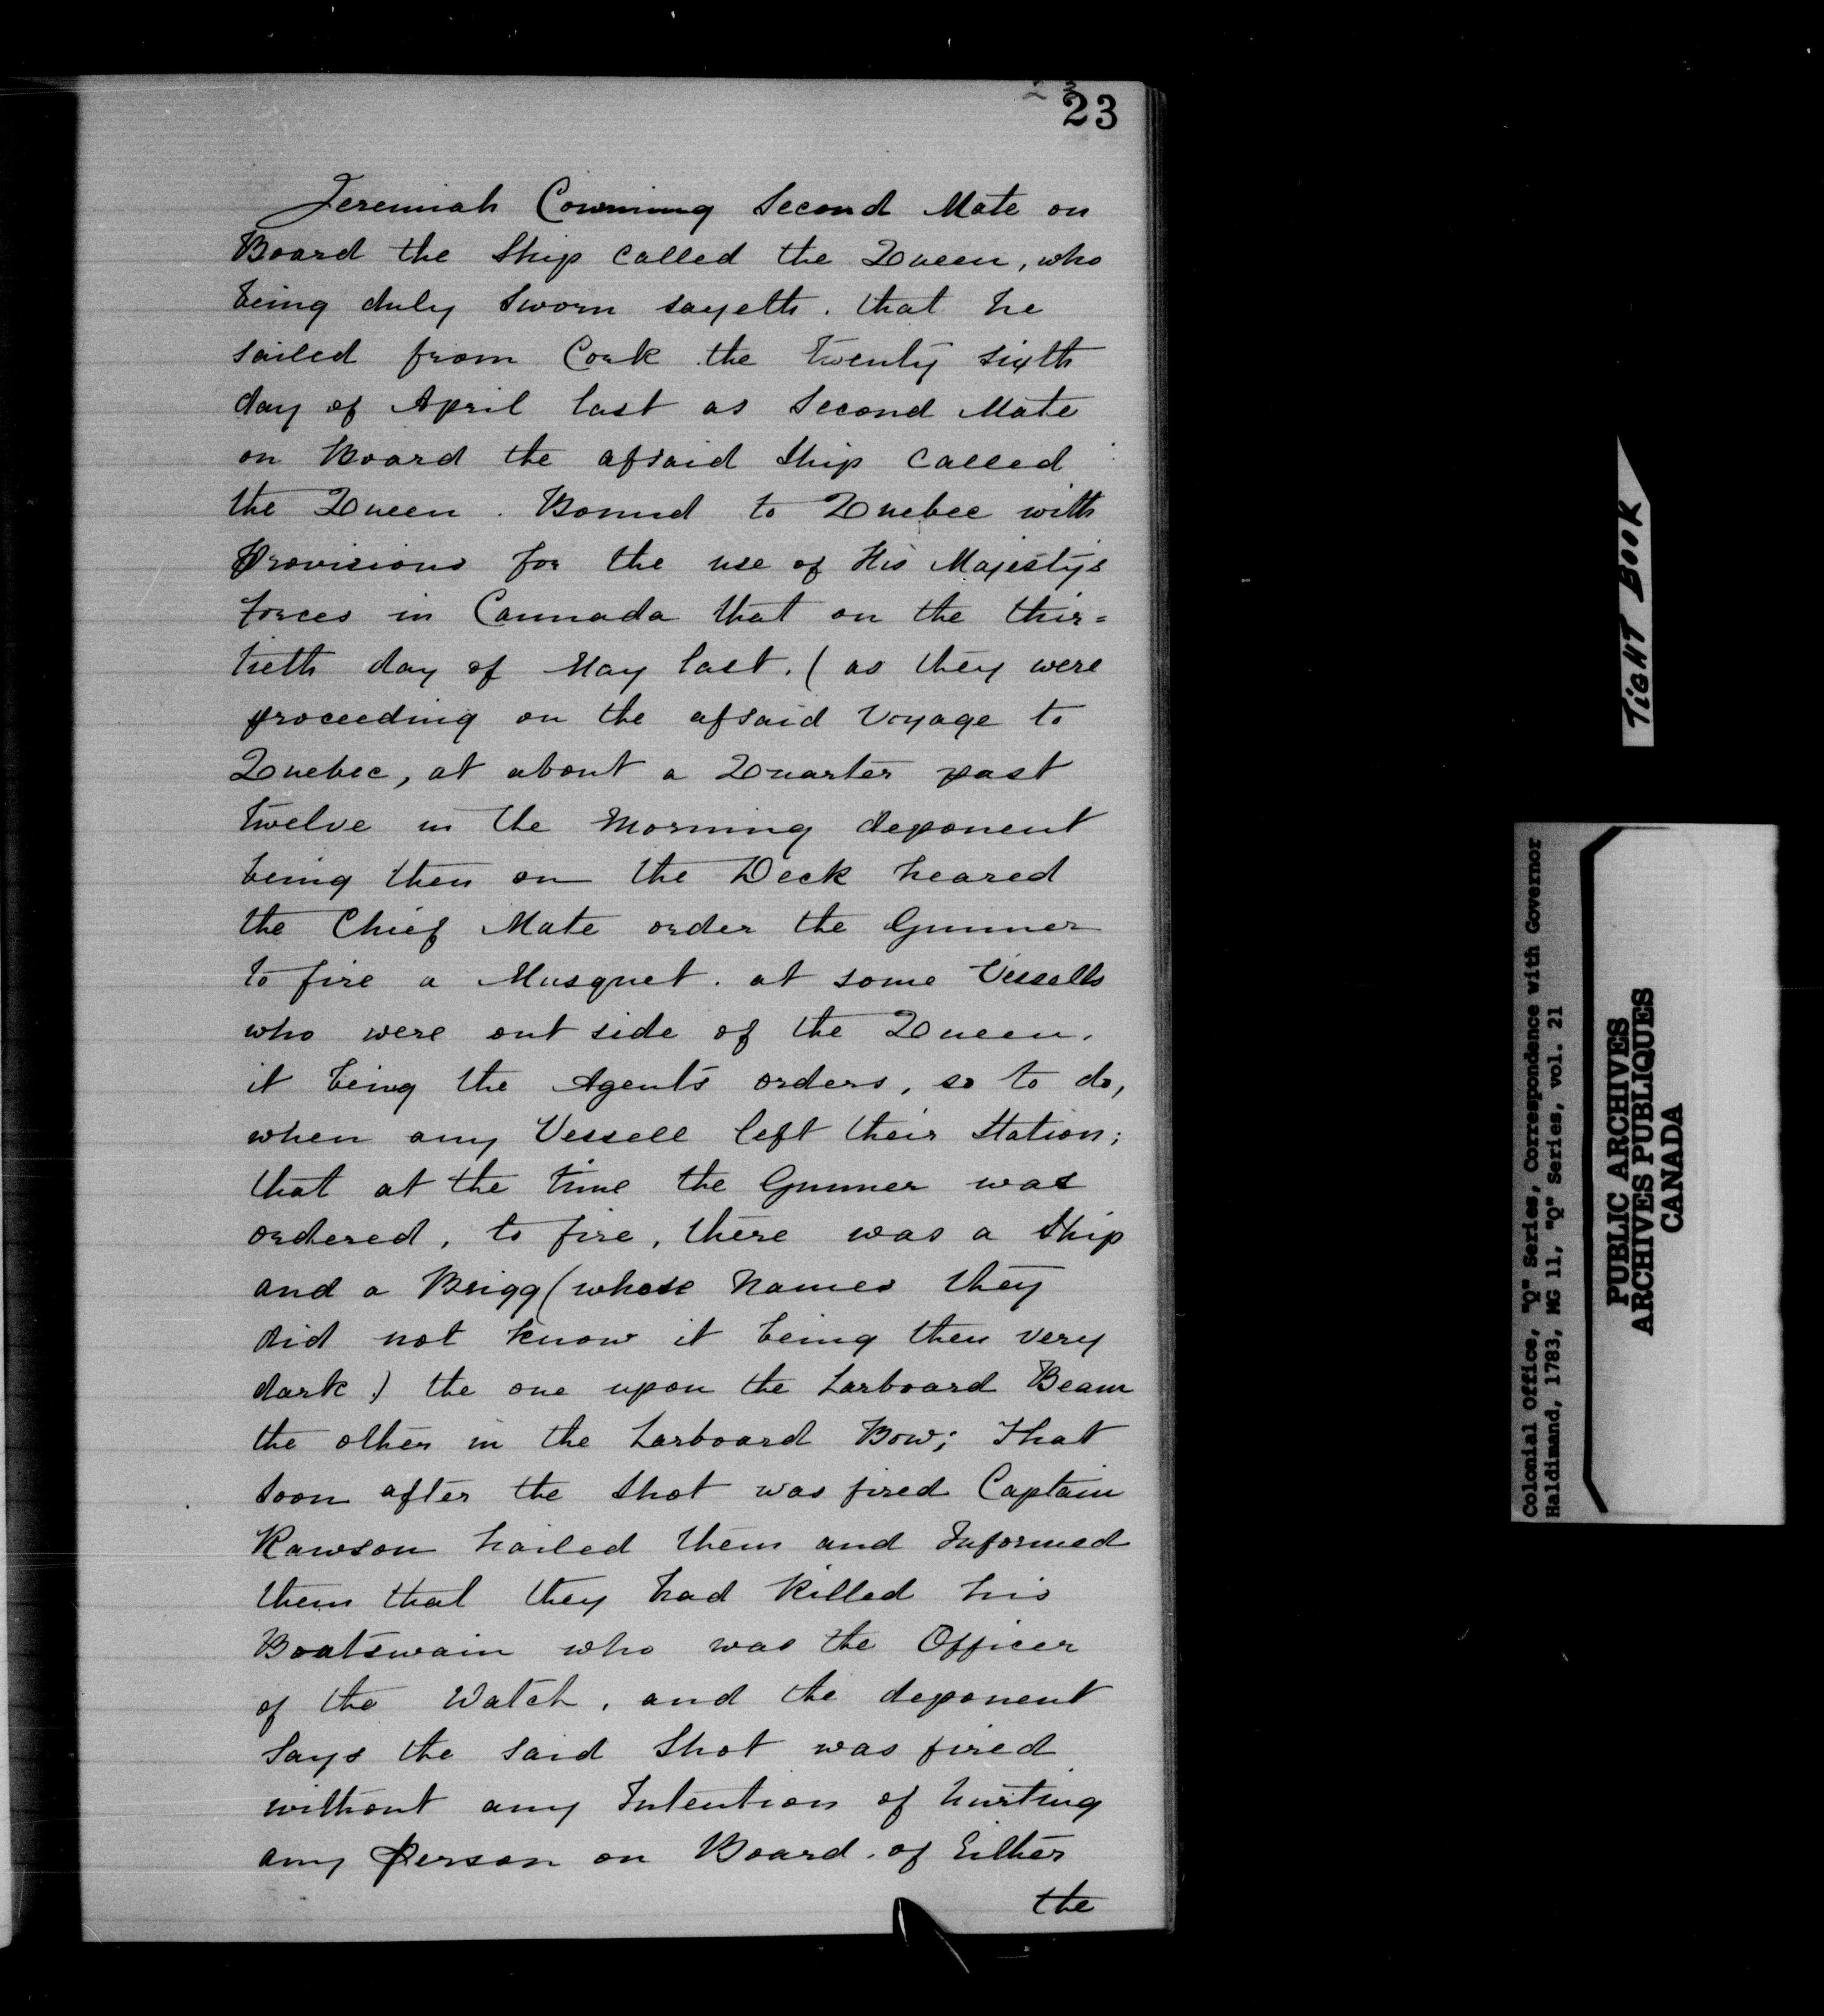 23
23
Jeremiah Cowming Second Mate on
Board the Ship called the Queen, who
being duly Sworn sayeth. that he
sailed from Cork the twenty sixth
day of April last as Second Mate
on Board the afsaid Ship called
the Queen. Bound to Quebec with
Provisions for the use of His Majesty's
forces in Cannada that on the thir=
tieth day of May last. ( as they were
proceeding on the afsaid Voyage to
Quebec, at about a Quarter past
twelve in the Morning deponent
being then on the Deck heared
the Chief Mate order the Gunner
to fire a Musquet. at some Vessells
who were out side of the Queen.
it being the Agent's orders, so to do,
when any Vessell left their Station;
that at the time the Gunner was
ordered, to fire, there was a Ship
and a Brigg (whose Names they
did not know it being then very
dark) the one upon the Larboard Beam
the other in the Larboard Bow; That
soon after the Shot was fired Captain
Rawson hailed them and Informed
them that they had Killed his
Boatswain who was the Officer
of the Watch, and the deponent
Says the said Shot was fired
without any Intention of hurting
any Person on Board. of Either
the
TIGHT BOOK
Colonial Office, "Q" Series, Correspondence with Governor
Haldimand, 1783, MG 11, "Q" Series, vol. 21
PUBLIC ARCHIVES
ARCHIVES PUBLIQUES
CANADA